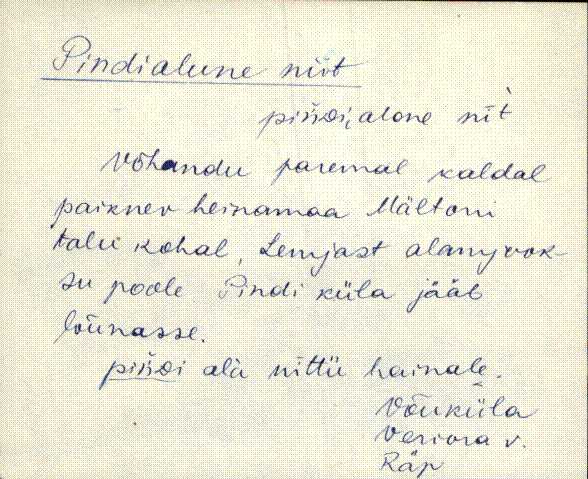 Pindialune niit
pińdi, alone nit̀
Võhandu paremal kaldal
paiknev heinamaa Mältoni
talu kohal, Lemjast allamjvok-
su poole Pindi küla jääb
lõunasse.
pińdi alà nittü hainalè.
Võuküla
Veriora v.
Räp